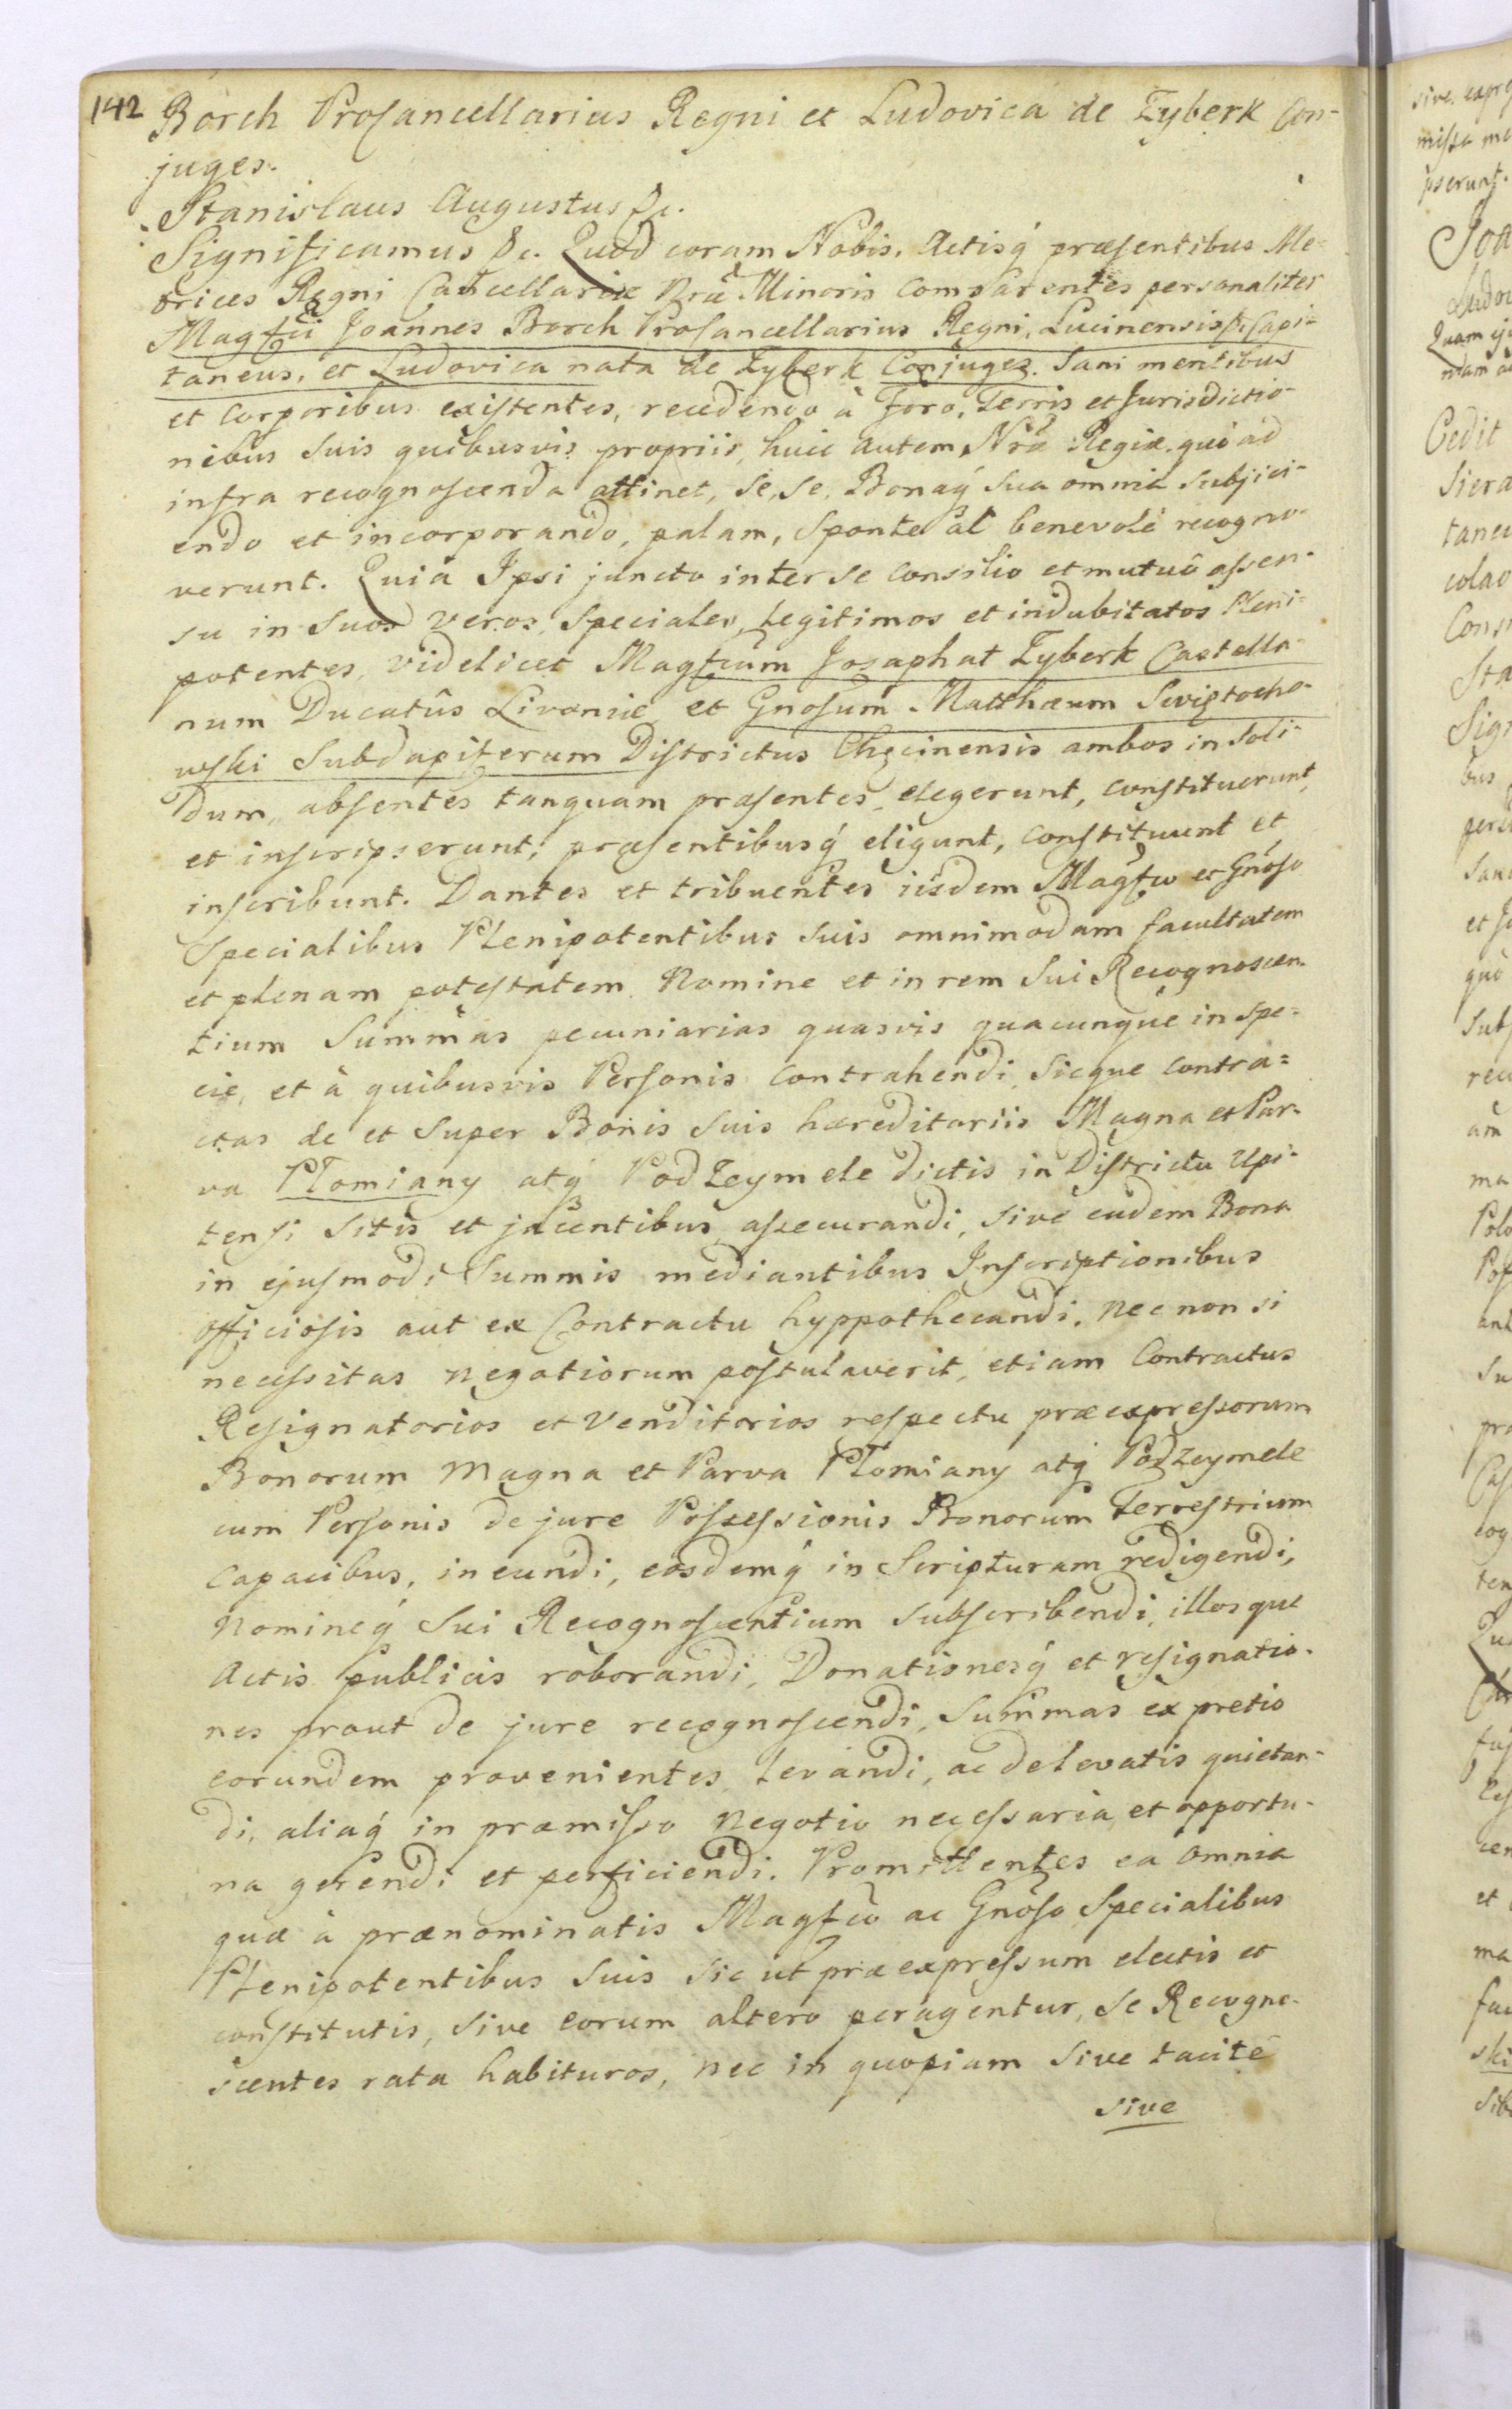 142 Borch Procancellarius Regni et Ludovica de Zyberk Con-
juges.
Stanislaus Augustus &c.
Significamus &c. Quod coram Nobis, Actisq́ præsentibus Me-
trices Regni Cancellariæ Nræ Minoris Comparentes personaliter
Magfci Joannes Borch Procancellarius Regni, Lucinensis &c Capi-
taneus, et Ludovica nata de Zyberk Conjuges. Sani mentibus
et Corporibus existentes, recedendo à Foro, Terris et Jurisdictio-
nibus suis quibusvis propriis, huic autem Nræ Regiæ quò ad
infra recognoscenda attinet, se, se, Bonaq́ sua omnia subjici-
endo et incorporando, palam, sponte ac benevolè recogno-
verunt. Quia Ipsi juncto inter se Consilio et mutuô assen-
su in suos veros, Speciales, Legitimos et indubitatos Pleni-
potentes, videlicet Magfcum Josaphat Zyberk Castella-
num Ducatûs Livoniæ et Gnosum Matthæum Swiętocho-
wski Subdapiferum Districtus Chęcinensis ambos in Soli-
dum, absentes tanquam præsentes, elegerunt, constituerunt,
et inscripserunt, præsentibusq́ eligunt, constituunt et
inscribunt. Dantes et tribuentes iisdem Magfco et Gnoso
Specialibus Plenipotentibus suis omnimodam facultatem
et plenam potestatem Nomine et in rem sui Recognoscen-
tium Summas pecuniarias quasvis quacunque in spe-
cie, et à quibusvis Personis Contrahendi, sicque contra-
ctas de et super Bonis suis hæreditariis Magna et Par-
va Płomiany atq́ PodZeymele dictis in Districtu Upi-
tensi sitis et jacentibus assecurandi, sive eadem Bona
in ejusmodi Summis mediantibus Inscriptionibus
officiosis aut ex Contractu hyppothecandi, nec non si
necessitas negotiorum postulaverit, etiam Contractus
Resignatorios et Venditorios respectu præexpressorum
Bonorum Magna et Parva Płomiany atq́ PodZeymele
cum Personis de jure Possessionis Bonorum Terrestrium
capacibus, ineundi, eosdemq́ in Scripturam redigendi,
Nomineq́ sui Recognoscentium subscribendi, illosque
Actis publicis roborandi, Donationesq́ et resignatio-
nes prout de jure recognoscendi, Summas ex pretio
eorundem provenientes levandi, ac de levatis quietan-
di, aliaq́ in præmisso Negotio necessaria, et opportu-
na gerendi et perficiendi. Promittentes ea omnia
quæ à prænominatis Magfco ac Gnoso Specialibus
Plenipotentibus suis sic ut præexpressum electis et
constitutis, sive eorum altero peragentur, se Recogno-
scentes rata habituros, nec in quopiam sive tacitè
sive